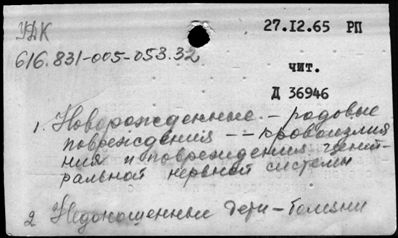 УДК
27.12.65 РП
616.831-005-053.32
чит.
Д 36946
1. Новорожденные – родовые
повреждения -- кровоизлия
ния и повреждения центра-
ральной нервной системы
2 Недоношенные дети – болезни